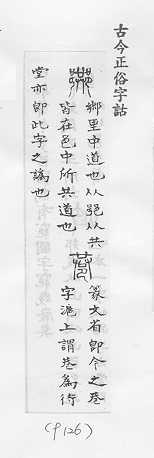 古今正俗字詁
里中道也从𨛜从共
皆在邑中所共道也
篆文省即今之巷
字滬上謂巷為衖
堂亦即此字之譌也
(P126)